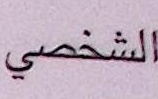 الشخصي